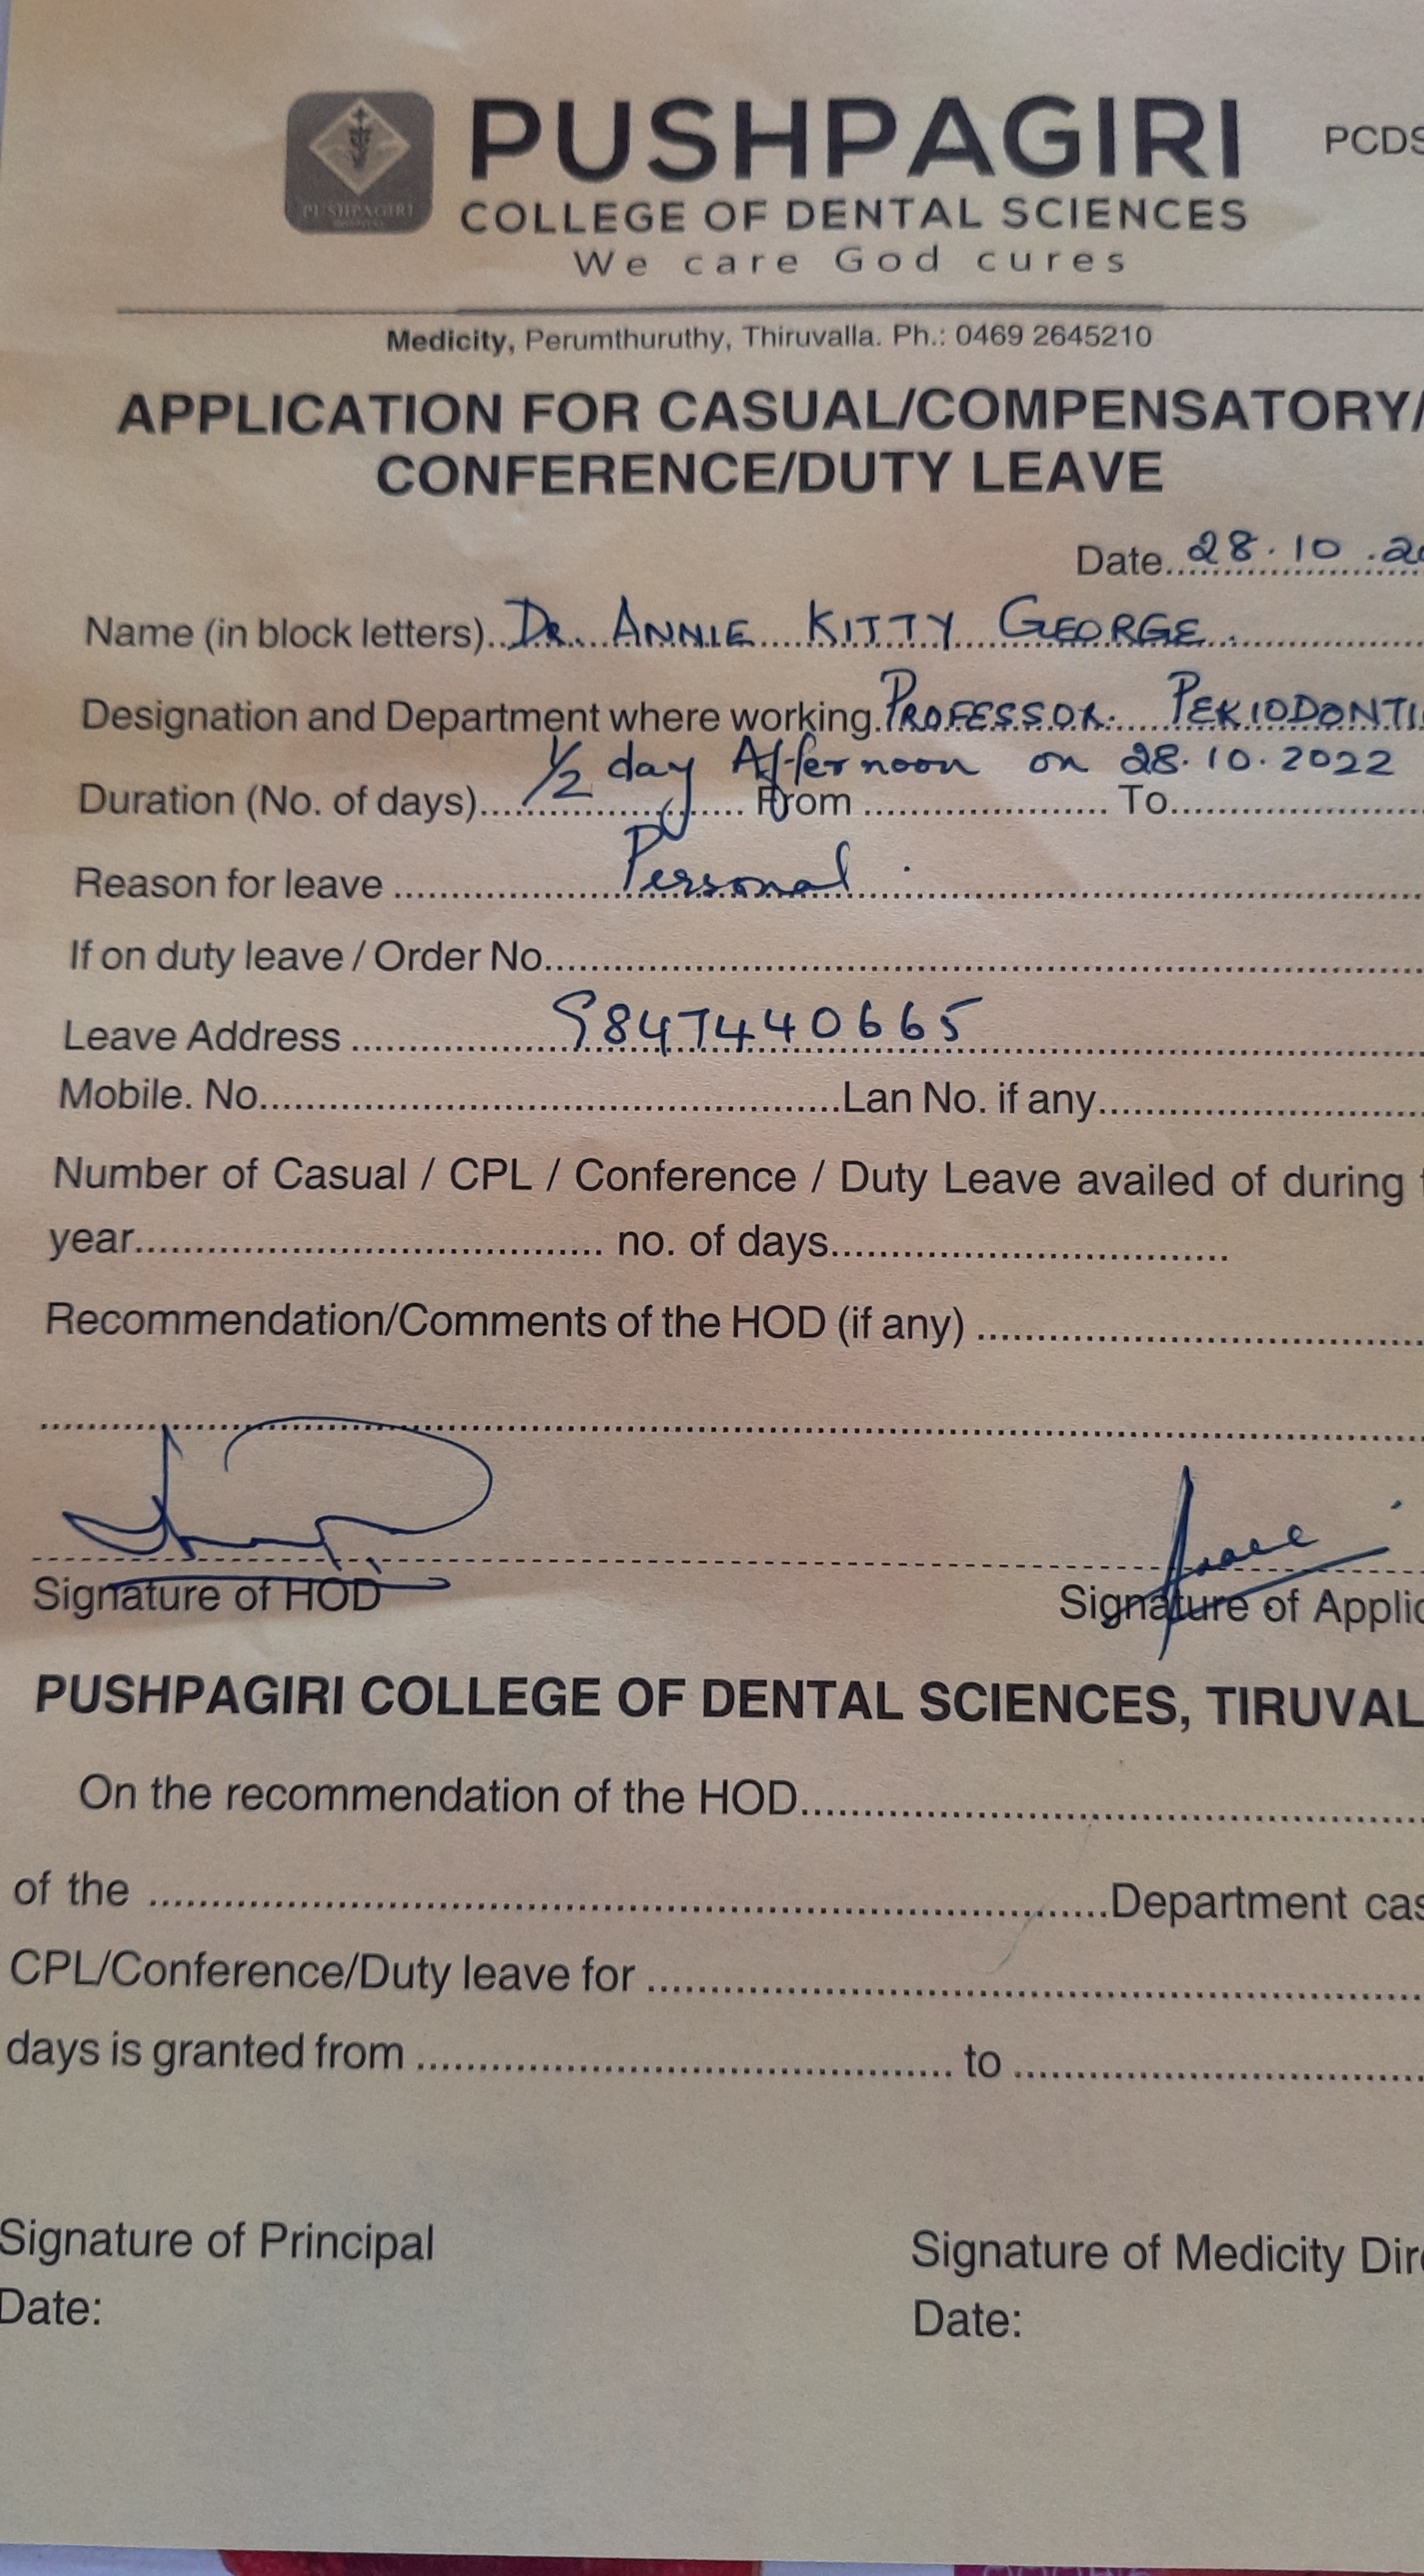 PUSHPAGIRI PCDS
PUSHPAGIRI
COLLEGE OF DENTAL SCIENCES
We care God cures
Medicity, Perumthuruthy, Thiruvalla. Ph.: 0469 2645210
APPLICATION FOR CASUAL/COMPENSATORY/
CONFERENCE/DUTY LEAVE
Date..28.10.20
Name (in block letters)..DR. ANNIE KITTY GEORGE.
Designation and Department where working.PROFESSOR. PERIODONTI
1/2 day Afternoon on 28.10.2022
Duration (No. of days)............ From ............ To............
Reason for leave ............Personal.
If on duty leave / Order No............
Leave Address ............9847440665
Mobile. No............Lan No. if any............
Number of Casual / CPL / Conference / Duty Leave availed of during
year............ no. of days............
Recommendation/Comments of the HOD (if any) ............
Signature of HOD Signature of Applic
PUSHPAGIRI COLLEGE OF DENTAL SCIENCES, TIRUVAL
On the recommendation of the HOD............
of the ............Department cas
CPL/Conference/Duty leave for ............
days is granted from ............ to ............
Signature of Principal Signature of Medicity Dire
Date: Date: